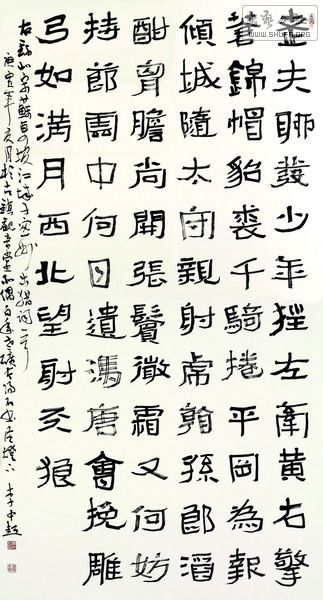 老夫聊發少年狂左牽黃右擎
蒼錦帽貂裘千騎捲平岡為報
傾城隨太守親射虎看孫郎酒
酣胷膽尚開張鬢微霜又何妨
持節雲中何日遣馮唐會挽雕
弓如满月西北望射天狼
右錄北宋蘇東坡江城子密州出猎詞一首
庚寅年 月於古鎮觀音堂 李中超
WWW.SHUFA.ORG